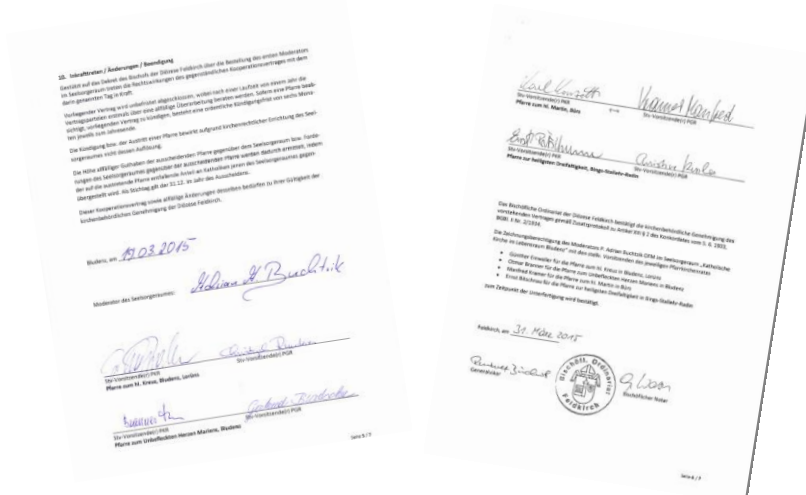 10. Inkrafttreten / Änderungen / Beendigung
Gestützt auf das Dekret des Bischofs der Diözese Feldkirch über die Bestellung des ersten Moderators
im Seelsorgeraum treten die Rechtswirkungen des gegenständlichen Kooperationsvertrages mit dem
darin genannten Tag in Kraft.
Vorliegender Vertrag wird unbefristet abgeschlossen, wobei nach einer Laufzeit von einem Jahr die
Vertragsparteien erstmals über eine allfällige Überarbeitung beraten werden. Sofern eine Pfarre beab-
sichtigt, vorliegenden Vertrag zu kündigen, besteht eine ordentliche Kündigungsfrist von sechs Mona-
ten jeweils zum Jahresende.
Die Kündigung bzw. der Austritt einer Pfarre bewirkt aufgrund kirchenrechtlicher Errichtung des Seel-
sorgeraumes nicht dessen Auflösung.
Die Höhe allfälliger Guthaben der ausscheidenden Pfarre gegenüber dem Seelsorgeraum bzw. Forde-
rungen des Seelsorgeraumes gegenüber der ausscheidenden Pfarre werden dadurch ermittelt, indem
der auf die austretende Pfarre entfallende Anteil an Katholiken jenen des Seelsorgeraumes gegen-
übergestellt wird. Als Stichtag gilt der 31.12. im Jahr des Ausscheidens.
Dieser Kooperationsvertrag sowie allfällige Änderungen desselben bedürfen zu ihrer Gültigkeit der
kirchenbehördlichen Genehmigung der Diözese Feldkirch.
Bludenz, am 19.03.2015
Moderator des Seelsorgeraumes:
Stv-Vorsitzende(r) PKR Stv-Vorsitzende(r) PGR
Pfarre zum hl. Kreuz, Bludenz, Lorüns
Stv-Vorsitzende(r) PKR Stv-Vorsitzende(r) PGR
Pfarre zum Unbefleckten Herzen Mariens, Bludenz
Seite 5 / 7
Stv-Vorsitzende(r) PKR Stv-Vorsitzende(r) PGR
Pfarre zum hl. Martin, Bürs
Stv-Vorsitzende(r) PKR Stv-Vorsitzende(r) PGR
Pfarre zur heiligsten Dreifaltigkeit, Bings-Stallehr-Radin
Das Bischöfliche Ordinariat der Diözese Feldkirch bestätigt die kirchenbehördliche Genehmigung des
vorstehenden Vertrages gemäß Zusatzprotokoll zu Artikel XIII § 2 des Konkordates vom 5. 6. 1933,
BGBl. II Nr. 2/1934.
Die Zeichnungsberechtigung des Moderators P. Adrian Buchtzik OFM im Seelsorgeraum „Katholische
Kirche im Lebensraum Bludenz“ mit den stellv. Vorsitzenden der jeweiligen Pfarrkirchenräte
• Günther Eisweiler für die Pfarre zum hl. Kreuz in Bludenz, Lorüns
• Otmar Bramer für die Pfarre zum Unbefleckten Herzen Mariens in Bludenz
• Manfred Kramer für die Pfarre zum hl. Martin in Bürs
• Ernst Bitschnau für die Pfarre zur heiligsten Dreifaltigkeit in Bings-Stallehr-Radin
zum Zeitpunkt der Unterfertigung wird bestätigt.
Feldkirch, am 31. März 2015
Generalvikar
Bischöfl. Ordinariat
Feldkirch
Bischöflicher Notar
Seite 6 / 7